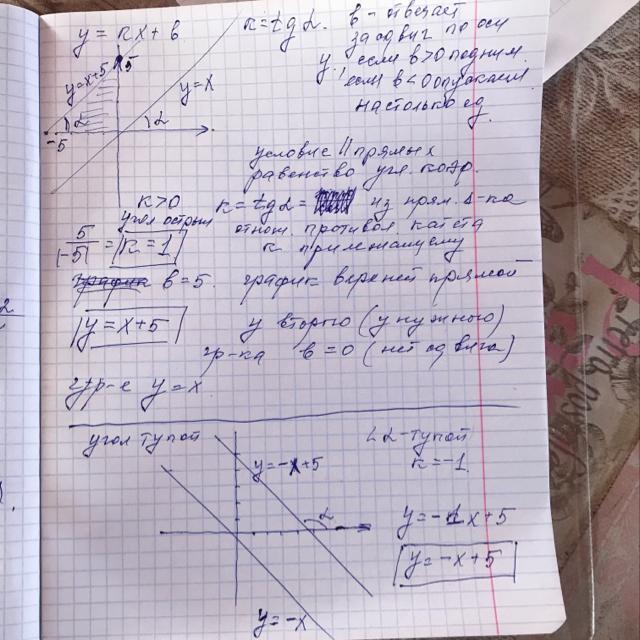 y = kx + b
k = tg α.
b - отвечает
за сдвиг по оси
y, если b > 0 подним.
если b < 0 опускаем
на столько ед.
5
y = x+5
y = x
α
α
-5
условие || прямых
равенство угл. коэф.
k > 0
угол острый
k = tg α = из прям. Δ-ка
отнош. противол. катета
к прилежащему
5/|-5| = k = 1
график b = 5. график верхней прямой
y = x+5
у второго (у нужного)
гр-ка b = 0 (нет сдвига)
y = x
угол тупой
∠α - тупой
k = -1.
y = -x+5
α
y = -1x+5
y = -x+5
y = -x